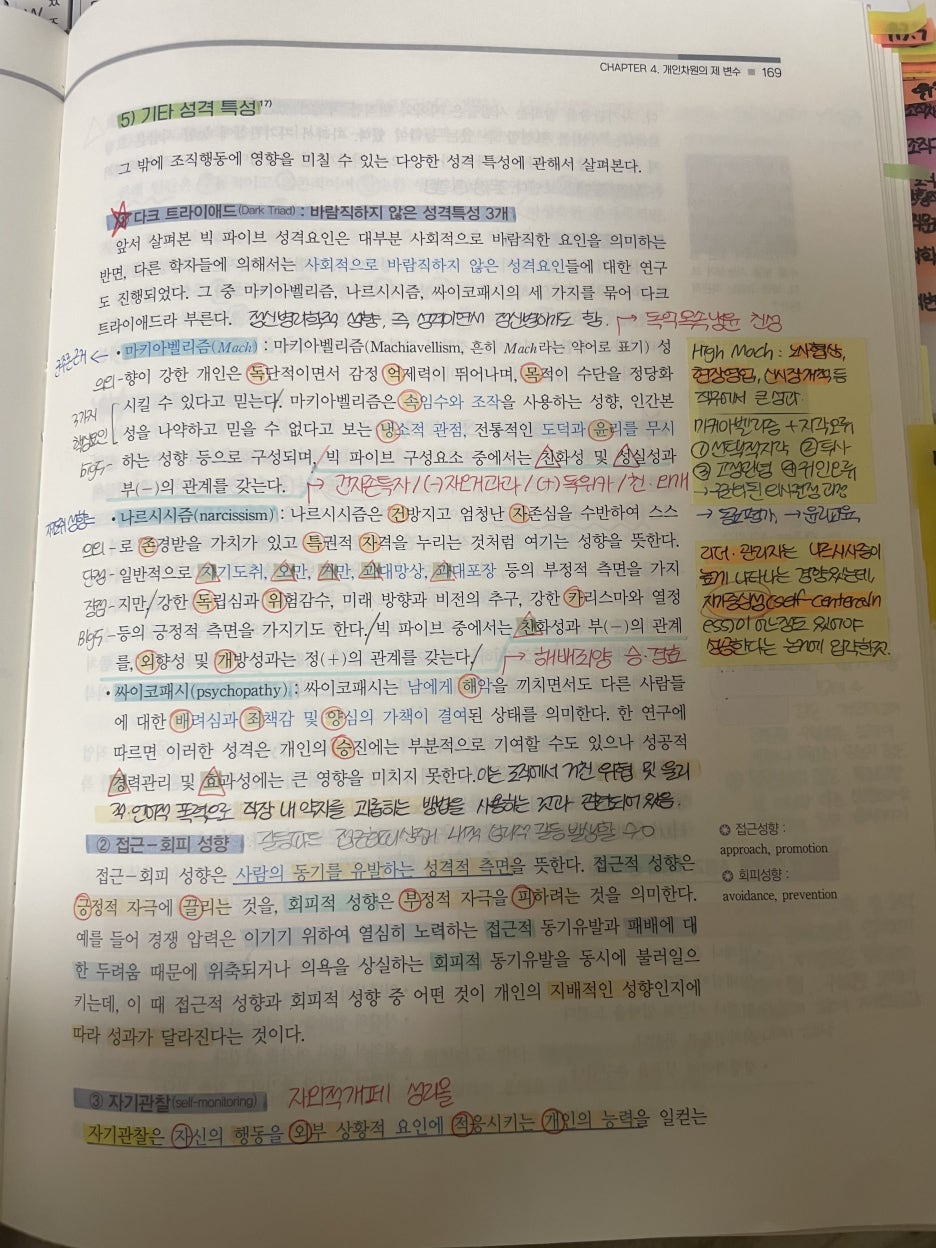 CHAPTER 4. 개인차원의 제 변수 ■ 169
5) 기타 성격 특성17)
그 밖에 조직행동에 영향을 미칠 수 있는 다양한 성격 특성에 관해서 살펴본다.
다크 트라이애드(Dark Triad) : 바람직하지 않은 성격특성 3개
앞서 살펴본 빅 파이브 성격요인은 대부분 사회적으로 바람직한 요인을 의미하는
반면, 다른 학자들에 의해서는 사회적으로 바람직하지 않은 성격요인들에 대한 연구
도 진행되었다. 그 중 마키아벨리즘, 나르시시즘, 싸이코패시의 세 가지를 묶어 다크
트라이애드라 부른다. 정신병리학적 성향, 즉 성격이면서 정신병이기도 함. → 독억목속냉윤 친성
• 마키아벨리즘(Mach) : 마키아벨리즘(Machiavellism, 흔히 Mach라는 약어로 표기) 성
의의 - 향이 강한 개인은 독단적이면서 감정 억제력이 뛰어나며, 목적이 수단을 정당화
3가지 시킬 수 있다고 믿는다. 마키아벨리즘은 속임수와 조작을 사용하는 성향, 인간본
핵심요인 성을 나약하고 믿을 수 없다고 보는 냉소적 관점, 전통적인 도덕과 윤리를 무시
big5 - 하는 성향 등으로 구성되며, 빅 파이브 구성요소 중에서는 친화성 및 성실성과
부(-)의 관계를 갖는다. → 건자존특자 / (-) 자오거과과 / (+) 독위카 / 친. 외개
• 나르시시즘(narcissism) : 나르시시즘은 건방지고 엄청난 자존심을 수반하여 스스
의의 - 로 존경받을 가치가 있고 특권적 자격을 누리는 것처럼 여기는 성향을 뜻한다.
단점 - 일반적으로 자기도취, 오만, 거만, 과대망상, 과대포장 등의 부정적 측면을 가지
장점 - 지만/강한 독립심과 위험감수, 미래 방향과 비전의 추구, 강한 카리스마와 열정
Big5 - 등의 긍정적 측면을 가지기도 한다./빅 파이브 중에서는 친화성과 부(-)의 관계
를, 외향성 및 개방성과는 정(+)의 관계를 갖는다./ → 해배죄양 승·경효
• 싸이코패시(psychopathy) : 싸이코패시는 남에게 해악을 끼치면서도 다른 사람들
에 대한 배려심과 죄책감 및 양심의 가책이 결여된 상태를 의미한다. 한 연구에
따르면 이러한 성격은 개인의 승진에는 부분적으로 기여할 수도 있으나 성공적
경력관리 및 효과성에는 큰 영향을 미치지 못한다. 이는 조직에서 거친 위협 및 물리
적·언어적 폭력으로 직장 내 약자를 괴롭히는 방법을 사용하는 것과 관련되어 있음.
② 접근–회피 성향 갈등파트 접근회피상황
접근–회피 성향은 사람의 동기를 유발하는 성격적 측면을 뜻한다. 접근적 성향은
긍정적 자극에 끌리는 것을, 회피적 성향은 부정적 자극을 피하려는 것을 의미한다.
예를 들어 경쟁 압력은 이기기 위하여 열심히 노력하는 접근적 동기유발과 패배에 대
한 두려움 때문에 위축되거나 의욕을 상실하는 회피적 동기유발을 동시에 불러일으
키는데, 이 때 접근적 성향과 회피적 성향 중 어떤 것이 개인의 지배적인 성향인지에
따라 성과가 달라진다는 것이다.
③ 자기관찰(self-monitoring) 자외적개
자기관찰은 자신의 행동을 외부 상황적 요인에 적응시키는 개인의 능력을 일컫는
High Mach : 노사협상,
현장영업, 신시장개척 등
직무에서 큰 성과.
마키아벨리즘 + 지각오류
① 선택적지각 ② 투사
③ 고정관념 ④ 귀인오류
→ 의사결정 과정
→ 동료평가, → 윤리교육
리더·관리자는 나르시시즘이
높게 나타나는 경향 있는데,
자기중심성(self-centeredn
ess)이 어느정도 있어야
성공한다는 논리에 입각한것.
✪ 접근성향 :
approach, promotion
✪ 회피성향 :
avoidance, prevention